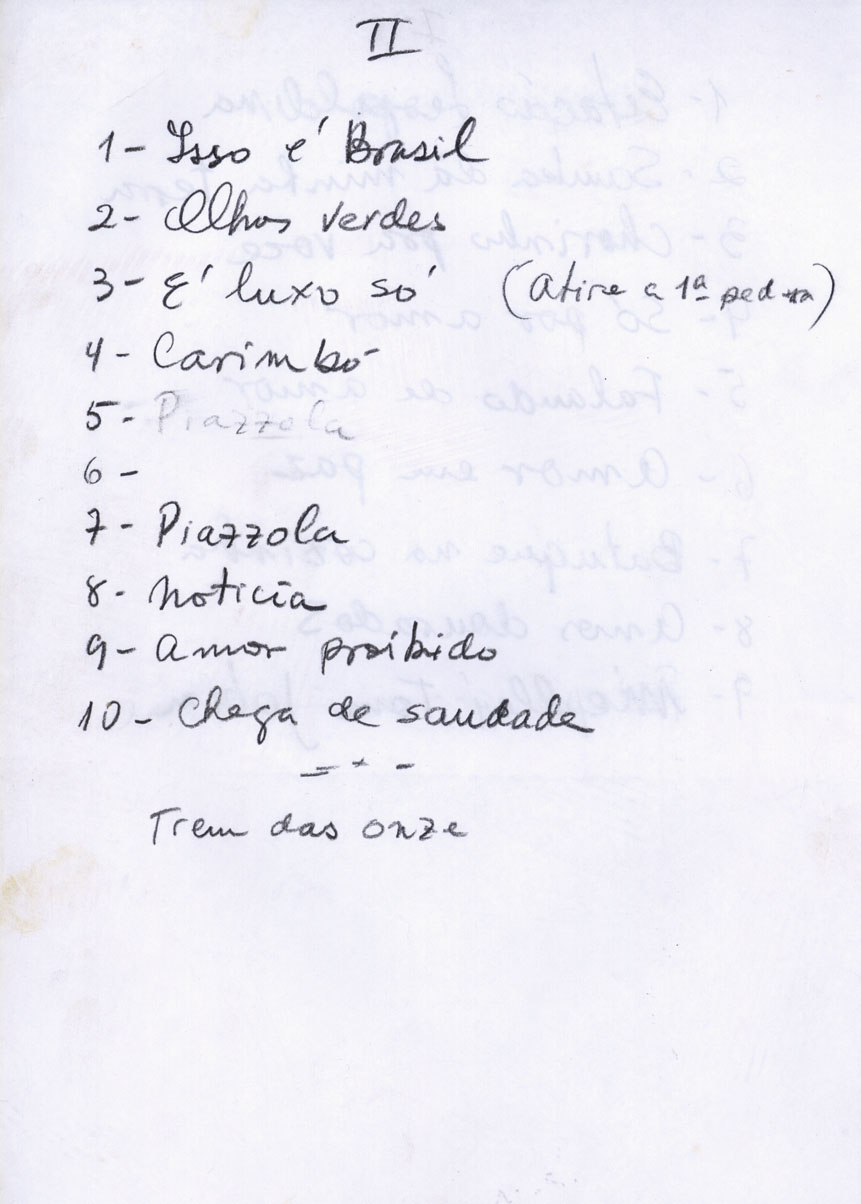 II
1- Isso é Brasil
2- Olhos verdes
3- É luxo só (Atire a 1ª pedra)
4- Carimbó
5- Piazzola
6-
7- Piazzola
8- Notícia
9- Amor proibido
10- Chega de saudade
Trem das onze